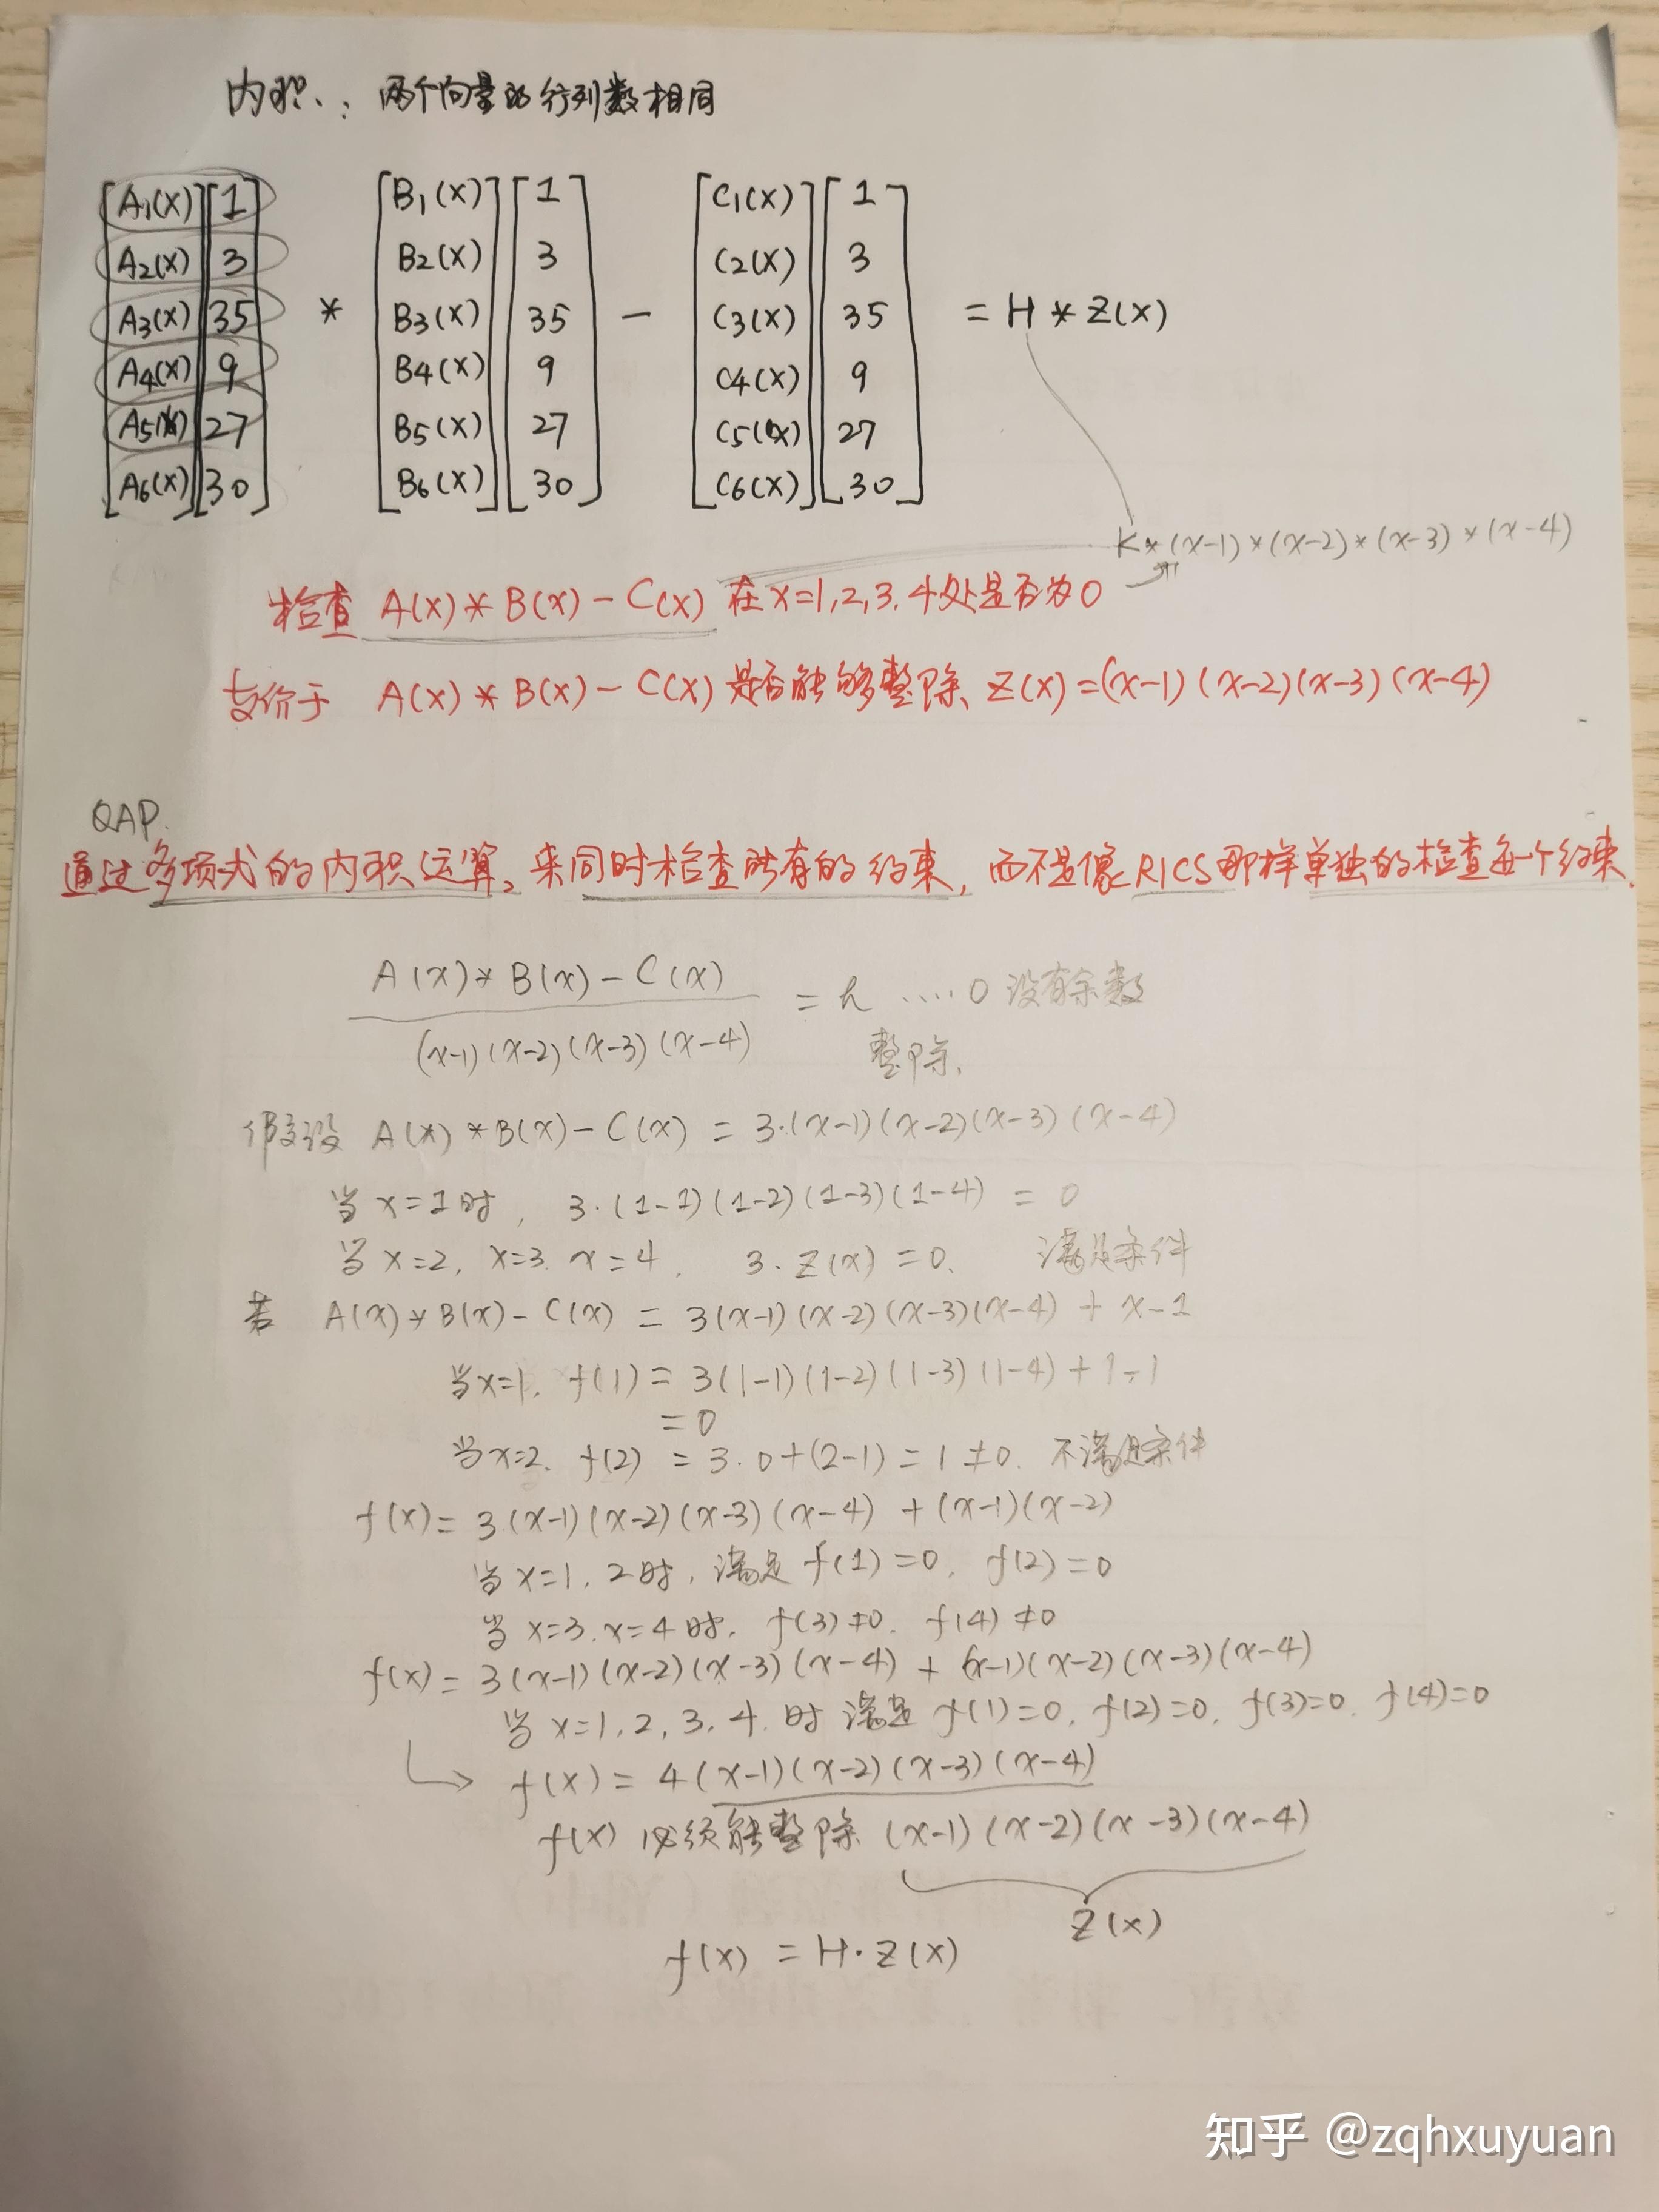 内积：两个向量的行列数相同
[A1(x)] [1] [B1(x)] [1] [C1(x)] [1]
[A2(x)] [3] [B2(x)] [3] [C2(x)] [3]
[A3(x)] [35] * [B3(x)] [35] - [C3(x)] [35] = H * Z(x)
[A4(x)] [9] [B4(x)] [9] [C4(x)] [9]
[A5(x)] [27] [B5(x)] [27] [C5(x)] [27]
[A6(x)] [30] [B6(x)] [30] [C6(x)] [30]
K*(x-1)*(x-2)*(x-3)*(x-4)
检查 A(x)*B(x)-C(x) 在x=1,2,3,4处是否为0
等价于 A(x)*B(x)-C(x)是否能够整除 Z(x)=(x-1)(x-2)(x-3)(x-4)
QAP
通过多项式的内积运算,来同时检查所有的约束,而不是像R1CS那样单独的检查每个约束.
A(x)*B(x)-C(x)
= h ....0 没有余数
(x-1)(x-2)(x-3)(x-4)
整除.
假设 A(x)*B(x)-C(x) = 3·(x-1)(x-2)(x-3)(x-4)
当 x=1时, 3·(1-1)(1-2)(1-3)(1-4) = 0
当 x=2, x=3. x=4. 3·Z(x)=0. 满足条件
若 A(x)*B(x)-C(x) = 3(x-1)(x-2)(x-3)(x-4) + x-1
当x=1, f(1) = 3(1-1)(1-2)(1-3)(1-4)+1-1
=0
当x=2. f(2) = 3·0+(2-1)=1≠0. 不满足条件
f(x)= 3(x-1)(x-2)(x-3)(x-4) + (x-1)(x-2)
当 x=1, 2时, 满足 f(1)=0, f(2)=0
当 x=3. x=4时. f(3)≠0. f(4)≠0
f(x)= 3(x-1)(x-2)(x-3)(x-4) + (x-1)(x-2)(x-3)(x-4)
当 x=1,2,3,4.时 满足 f(1)=0, f(2)=0, f(3)=0. f(4)=0
f(x) = 4(x-1)(x-2)(x-3)(x-4)
f(x) 必须能整除 (x-1)(x-2)(x-3)(x-4)
Z(x)
f(x) = H·Z(x)
知乎 @zqhxuyuan